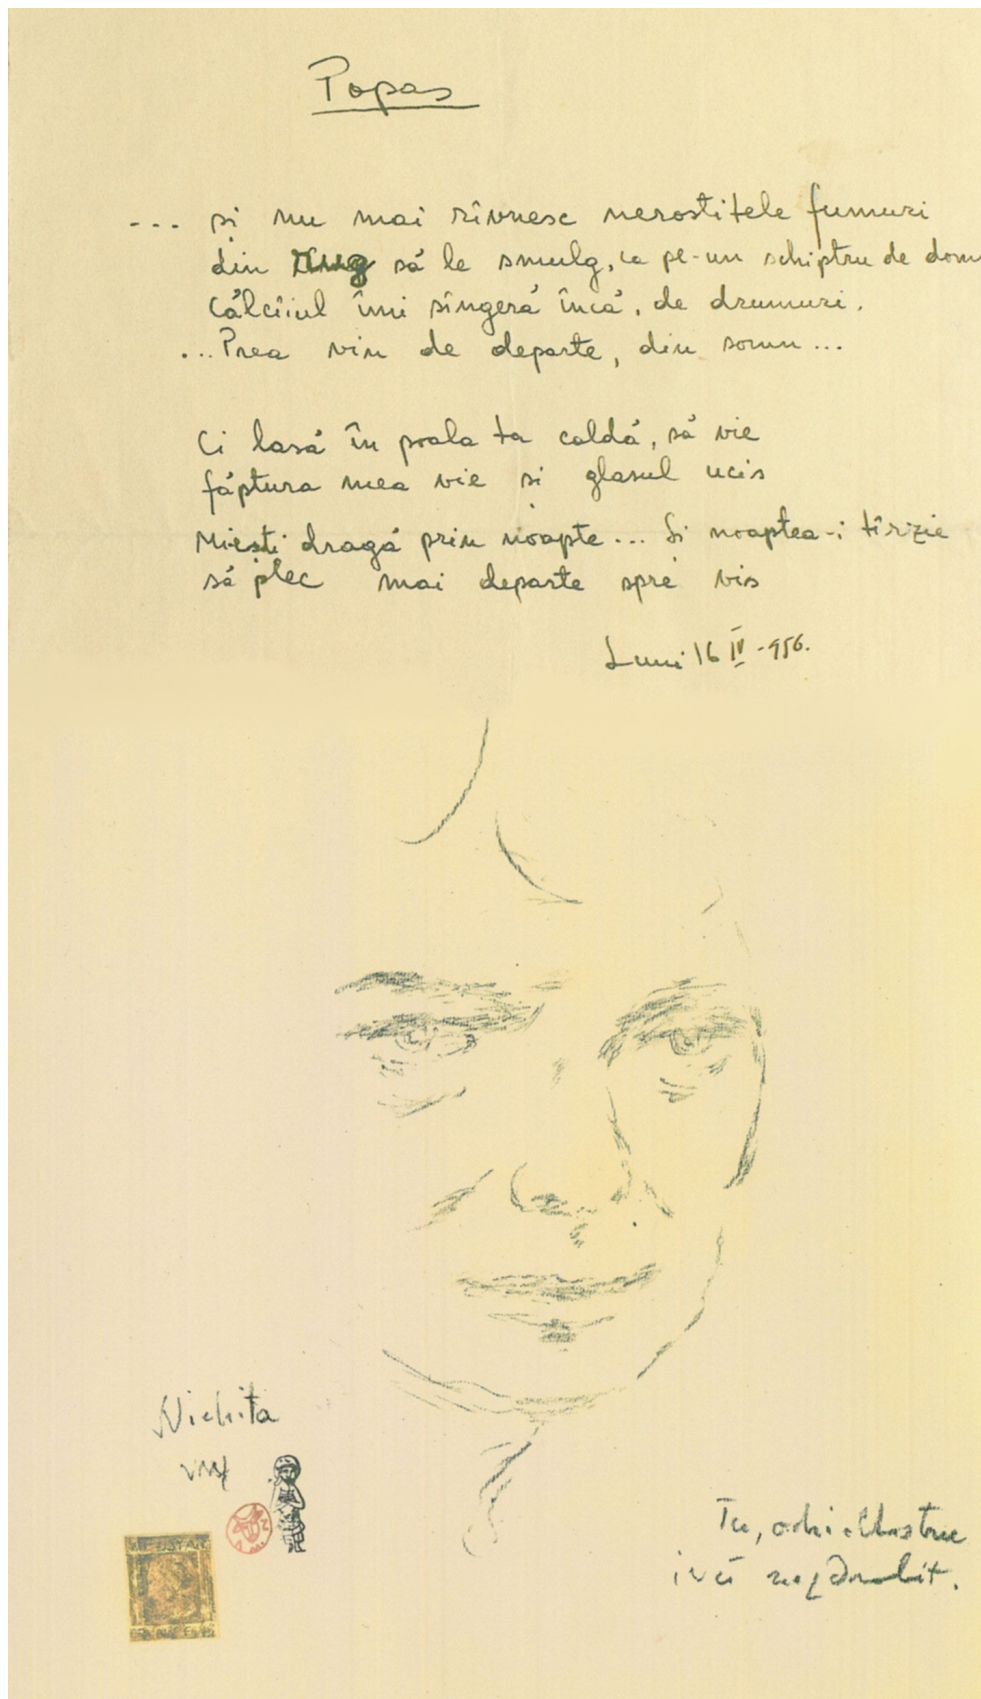 Popas
--- și nu mai rîvnesc nerostitele fumuri
din rug să le smulg, ca pe-un schiptru de domn
Călcîiul îmi sîngeră încă, de drumuri.
...Prea vin de departe, din somn...
Ci lasă în poala ta caldă, să vie
făptura mea vie și glasul ucis
Mi-ești dragă prin noapte... Și noaptea-i tîrzie
să plec mai departe spre vis
Luni 16 IV -956.
Nichita
Tu, ochi albastru
încă